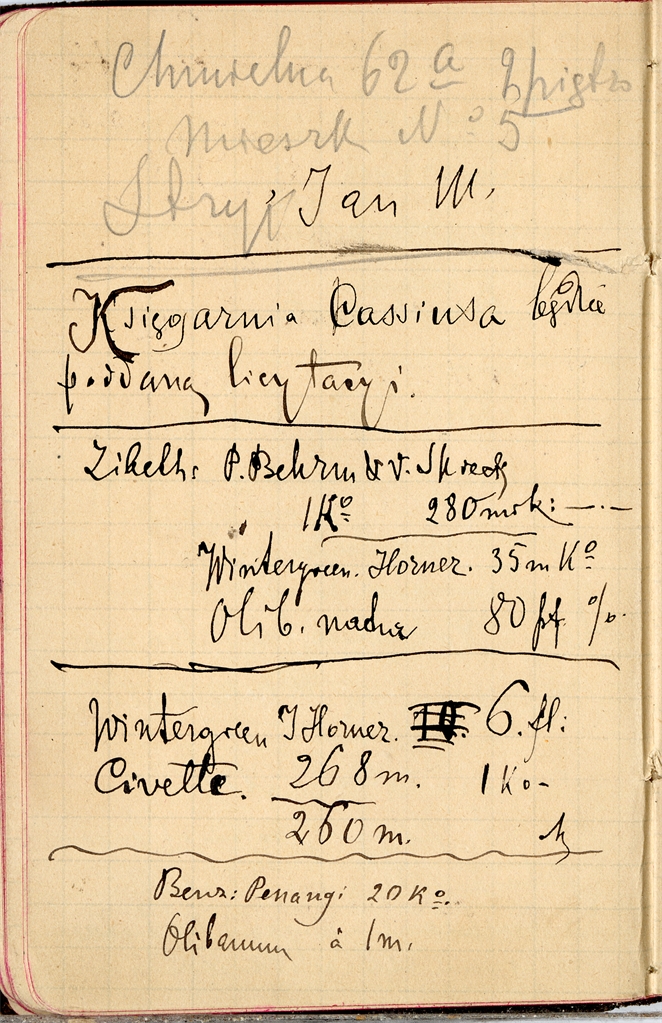 Chmielna 62 a 2 piętro
mieszk No 5
Stryj Jan M.
Księgarnia Cassiusa będzie
poddaną licytacyi.
Zibeth: P. Behrm & v. Spreck
1 Ko 280 mrk: —.—
Wintergreen. Horner. 35 m Ko
Olib. 80 pf. %.
Wintergreen J Horner. 6. fl:
Civette. 268 m. 1 Ko-
260 m.
Benz: Penangi 20 Ko.
Olibanum à 1 m.